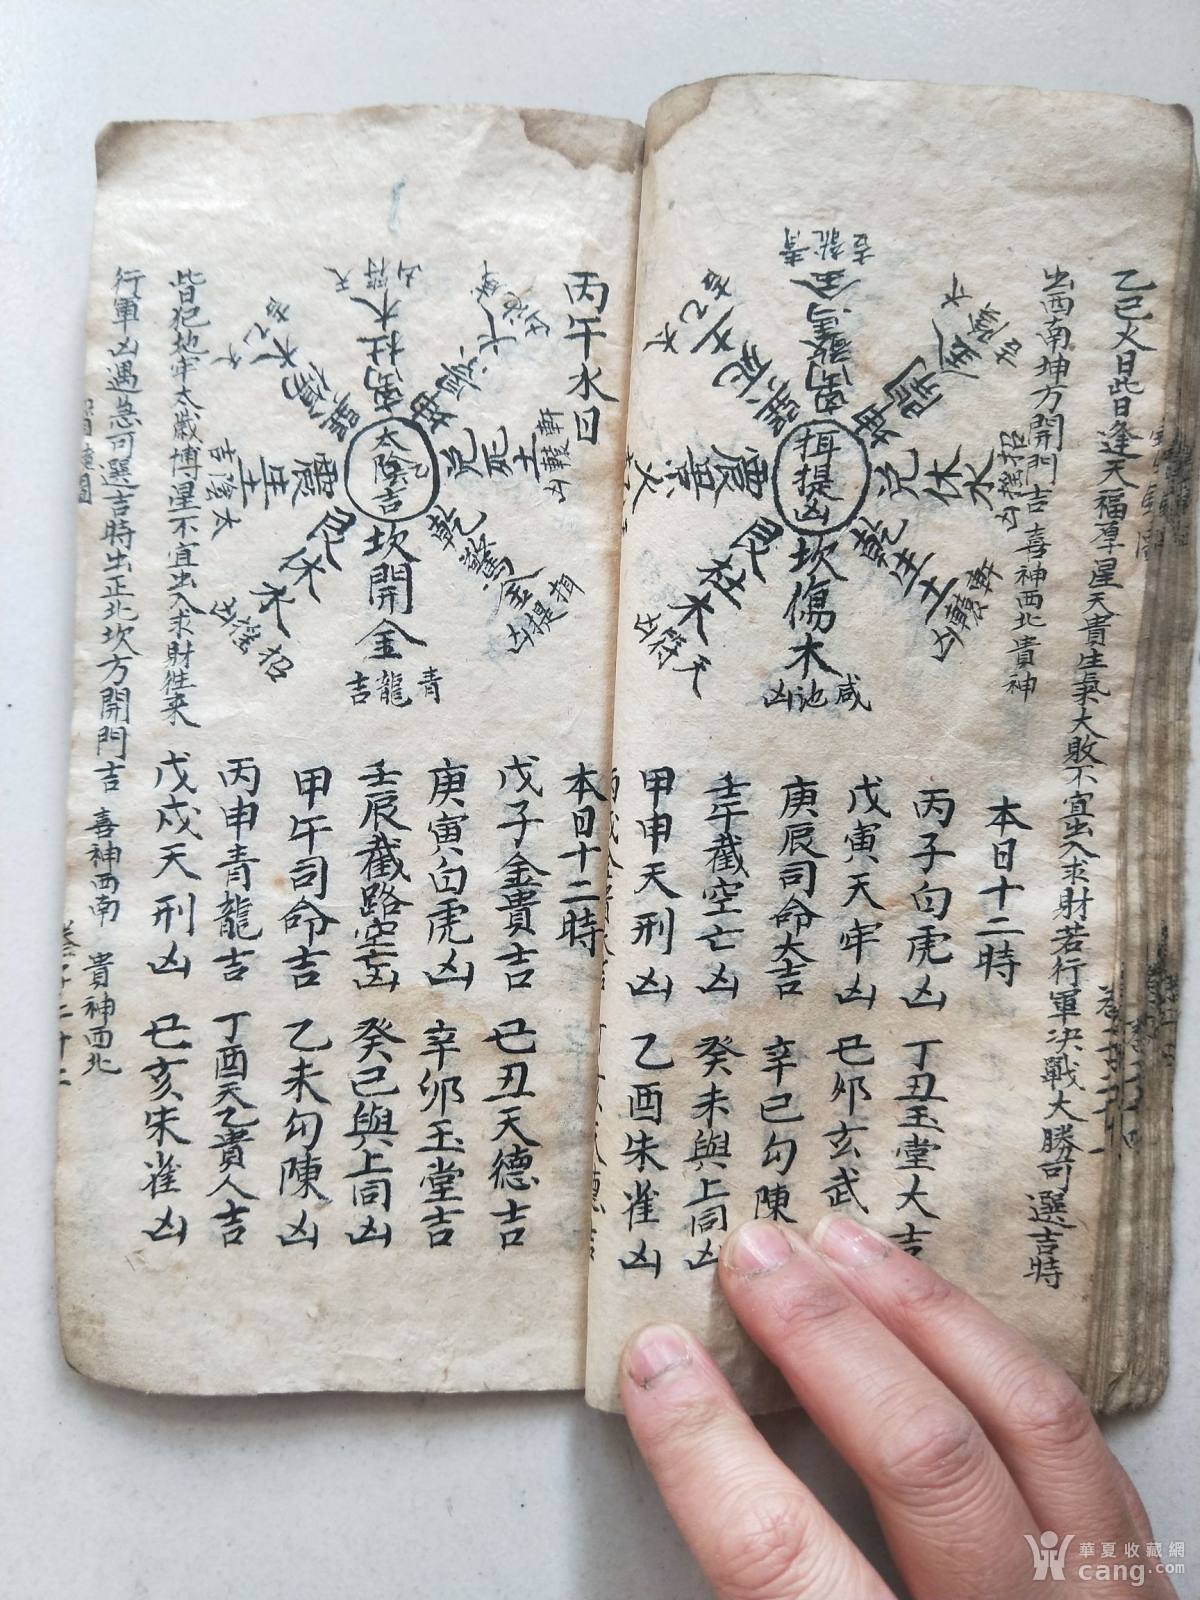 乙巳火日此日逢天福厚星天貴生氣大敗不宜出入求財若行軍决戰大勝可選吉時
出西南坤方開門吉 喜神西北貴神
揖提凶
坎傷木
咸池凶
乾生土
軒轅凶
兌休水
招摇凶
坤開金
離驚金
青龍吉
巽死土
震景火
艮杜木
天符凶
本日十二時
丙子白虎凶 丁丑玉堂大吉
戊寅天牢凶 己卯玄武
庚辰司命大吉 辛巳勾陳
壬午截空亡凶 癸未與上同凶
甲申天刑凶 乙酉朱雀凶
丙午水日
太陰吉
坎開金
青龍吉
乾驚金
揖提凶
兌死土
軒轅凶
坤景火
咸池凶
離杜木
天符凶
巽傷木
太乙
震生土
太陰吉
艮休水
招摇凶
本日十二時
戊子金貴吉 己丑天德吉
庚寅白虎凶 辛卯玉堂吉
壬辰截路空亡凶 癸巳與上同凶
甲午司命吉 乙未勾陳凶
丙申青龍吉 丁酉天乙貴人吉
戊戍天刑凶 己亥朱雀凶
皆犯地牢太歲博星不宜出入求財往來
行軍凶遇急可選吉時出正北坎方開門吉 喜神西南 貴神西北
華夏收藏網
cang.com